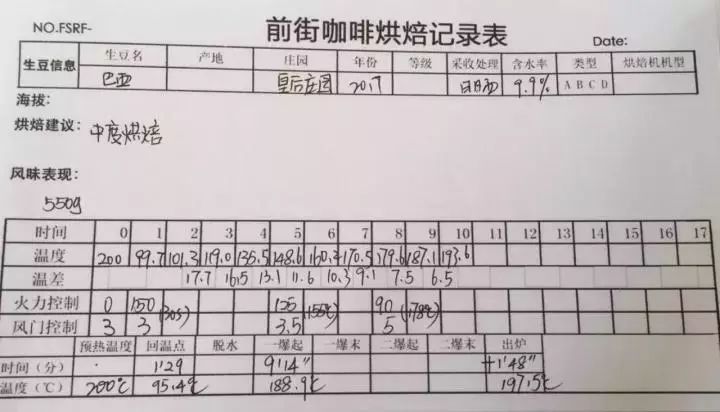 NO.FSRF-
前街咖啡烘焙记录表
Date:
生豆信息 生豆名 产地 庄园 年份 等级 采收处理 含水率 类型 烘焙机机型
巴西 皇后庄园 2017 日晒 9.9% A B C D
海拔:
烘焙建议: 中度烘焙
风味表现:
550g
时间 0 1 2 3 4 5 6 7 8 9 10 11 12 13 14 15 16 17
温度 200 99.7 101.3 119.0 135.5 148.6 160.2 170.5 179.6 187.1 193.6
温差 17.7 16.5 13.1 11.6 10.3 9.1 7.5 6.5
火力控制 0 150 (30s) 125 (155℃) 90 (178℃)
风门控制 3 3 3.5 5
预热温度 回温点 脱水 一爆起 一爆末 二爆起 二爆末 出炉
时间(分) 1'29 9'14" +1'48"
温度(℃) 200℃ 95.4℃ 188.9℃ 197.5℃